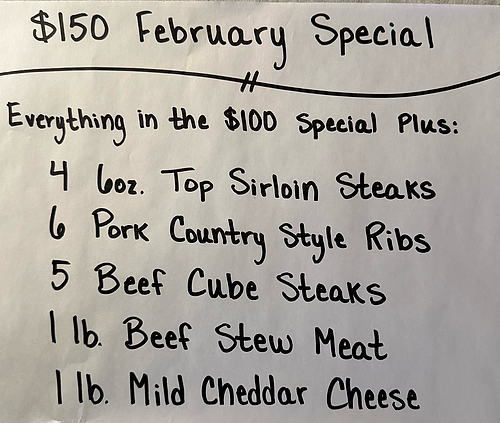 $150 February Special
Everything in the $100 Special Plus:
4 6oz. Top Sirloin Steaks
6 Pork Country Style Ribs
5 Beef Cube Steaks
1 lb. Beef Stew Meat
1 lb. Mild Cheddar Cheese